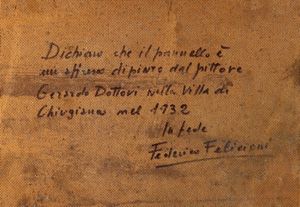 Dichiaro che il pannello è
un affresco dipinto dal pittore
Gerardo Dottori nella Villa di
Chiugiana nel 1932
In fede
Federico Felicioni